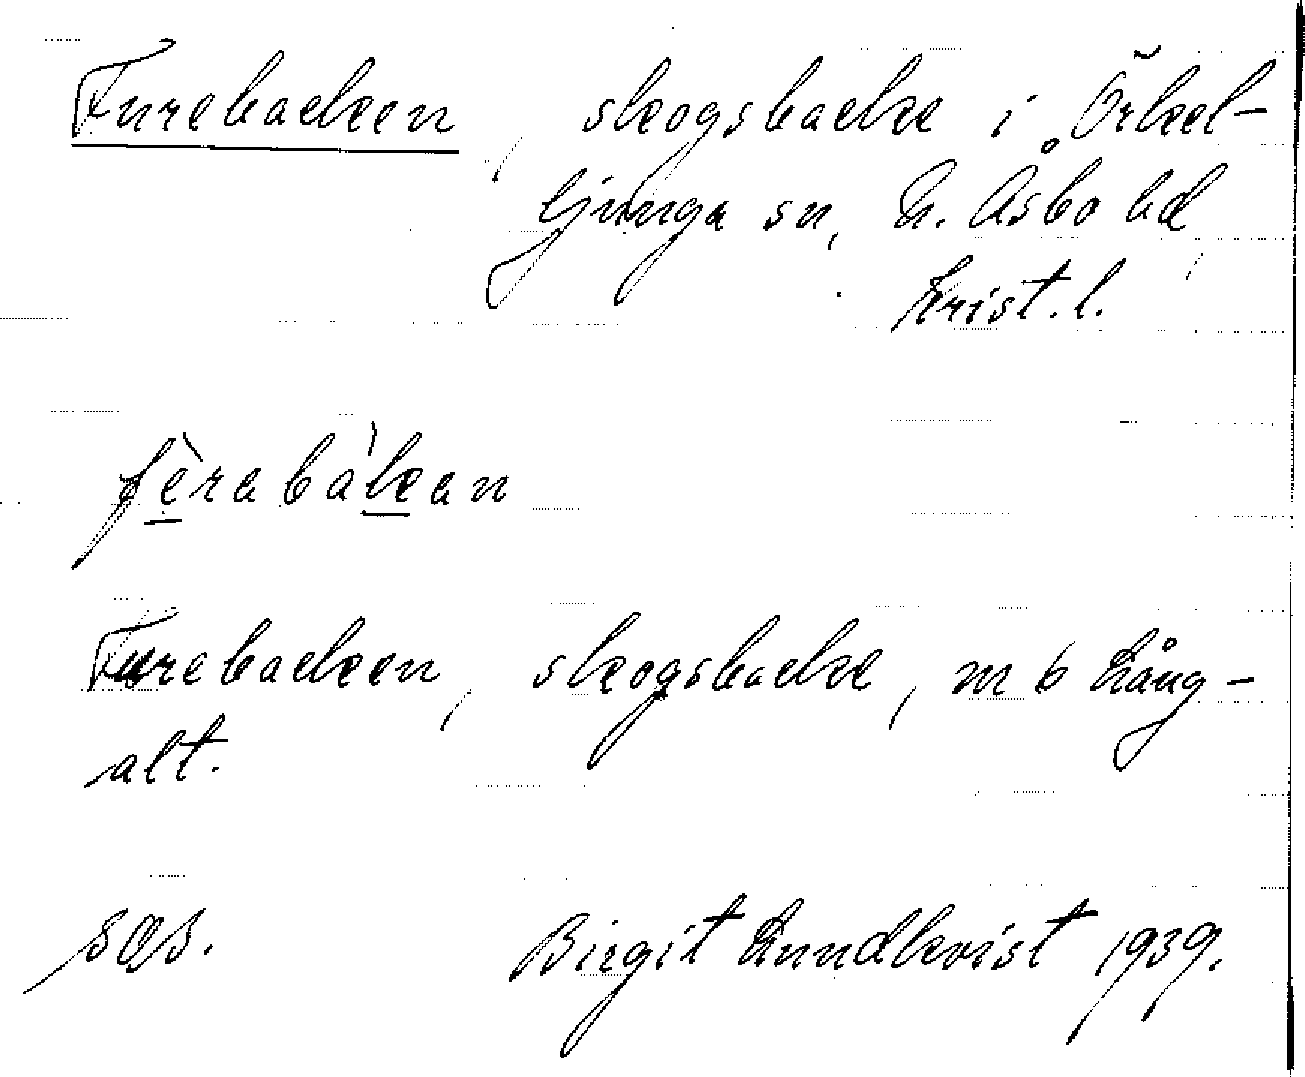 Furebacken, skogsbacke i Örkel-
ljunga sn, N. Åsbo hd,
Krist. l.
fèrabàkan
Furebacken, skogsbacke, m b Lång-
alt.
sgs. Birgit Lundkvist 1939.